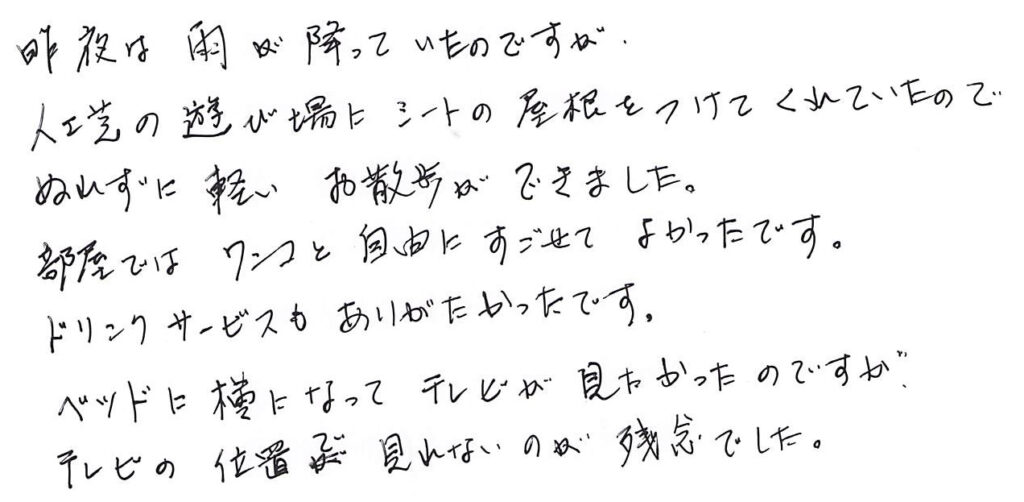 昨夜は雨が降っていたのですが、
人工芝の遊び場にシートの屋根をつけてくれていたので
ぬれずに軽い お散歩ができました。
部屋では ワンコと自由にすごせて よかったです。
ドリンクサービスも ありがたかったです。
ベッドに横になって テレビが 見たかったのですが、
テレビの位置で見れないのが 残念でした。